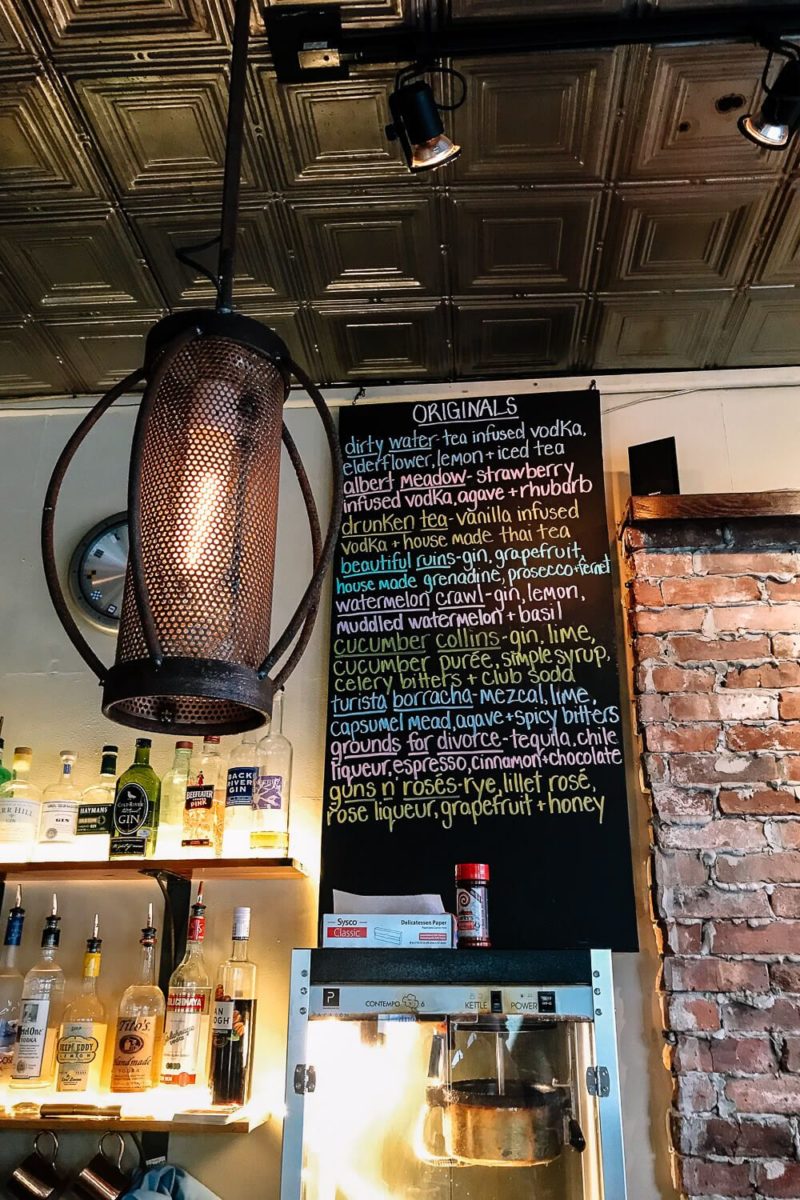 ORIGINALS
dirty water-tea infused vodka,
elderflower, lemon + iced tea
albert meadow- strawberry
infused vodka, agave + rhubarb
drunken tea-vanilla infused
vodka + house made thai tea
beautiful ruins-gin, grapefruit,
house made grenadine, prosecco + fernet
watermelon crawl-gin, lemon,
muddled watermelon + basil
cucumber collins-gin, lime,
cucumber purée, simple syrup,
celery bitters + club soda
turista borracha-mezcal, lime,
capsumel mead, agave + spicy bitters
grounds for divorce-tequila, chile
liqueur, espresso, cinnamon + chocolate
guns n' rosés-rye, lillet rosé,
rose liqueur, grapefruit + honey
BARR HILL
GIN
HAYMAN'S
COLD RIVER
GIN
BEEFEATER
PINK
BACK
RIVER
GIN
Sysco
Classic
Delicatessen Paper
CONTEMPO POP 6
KETTLE
POWER
VODKA
DEEP EDDY
LEMON
Tito's
Handmade
VODKA
STOLICHNAYA